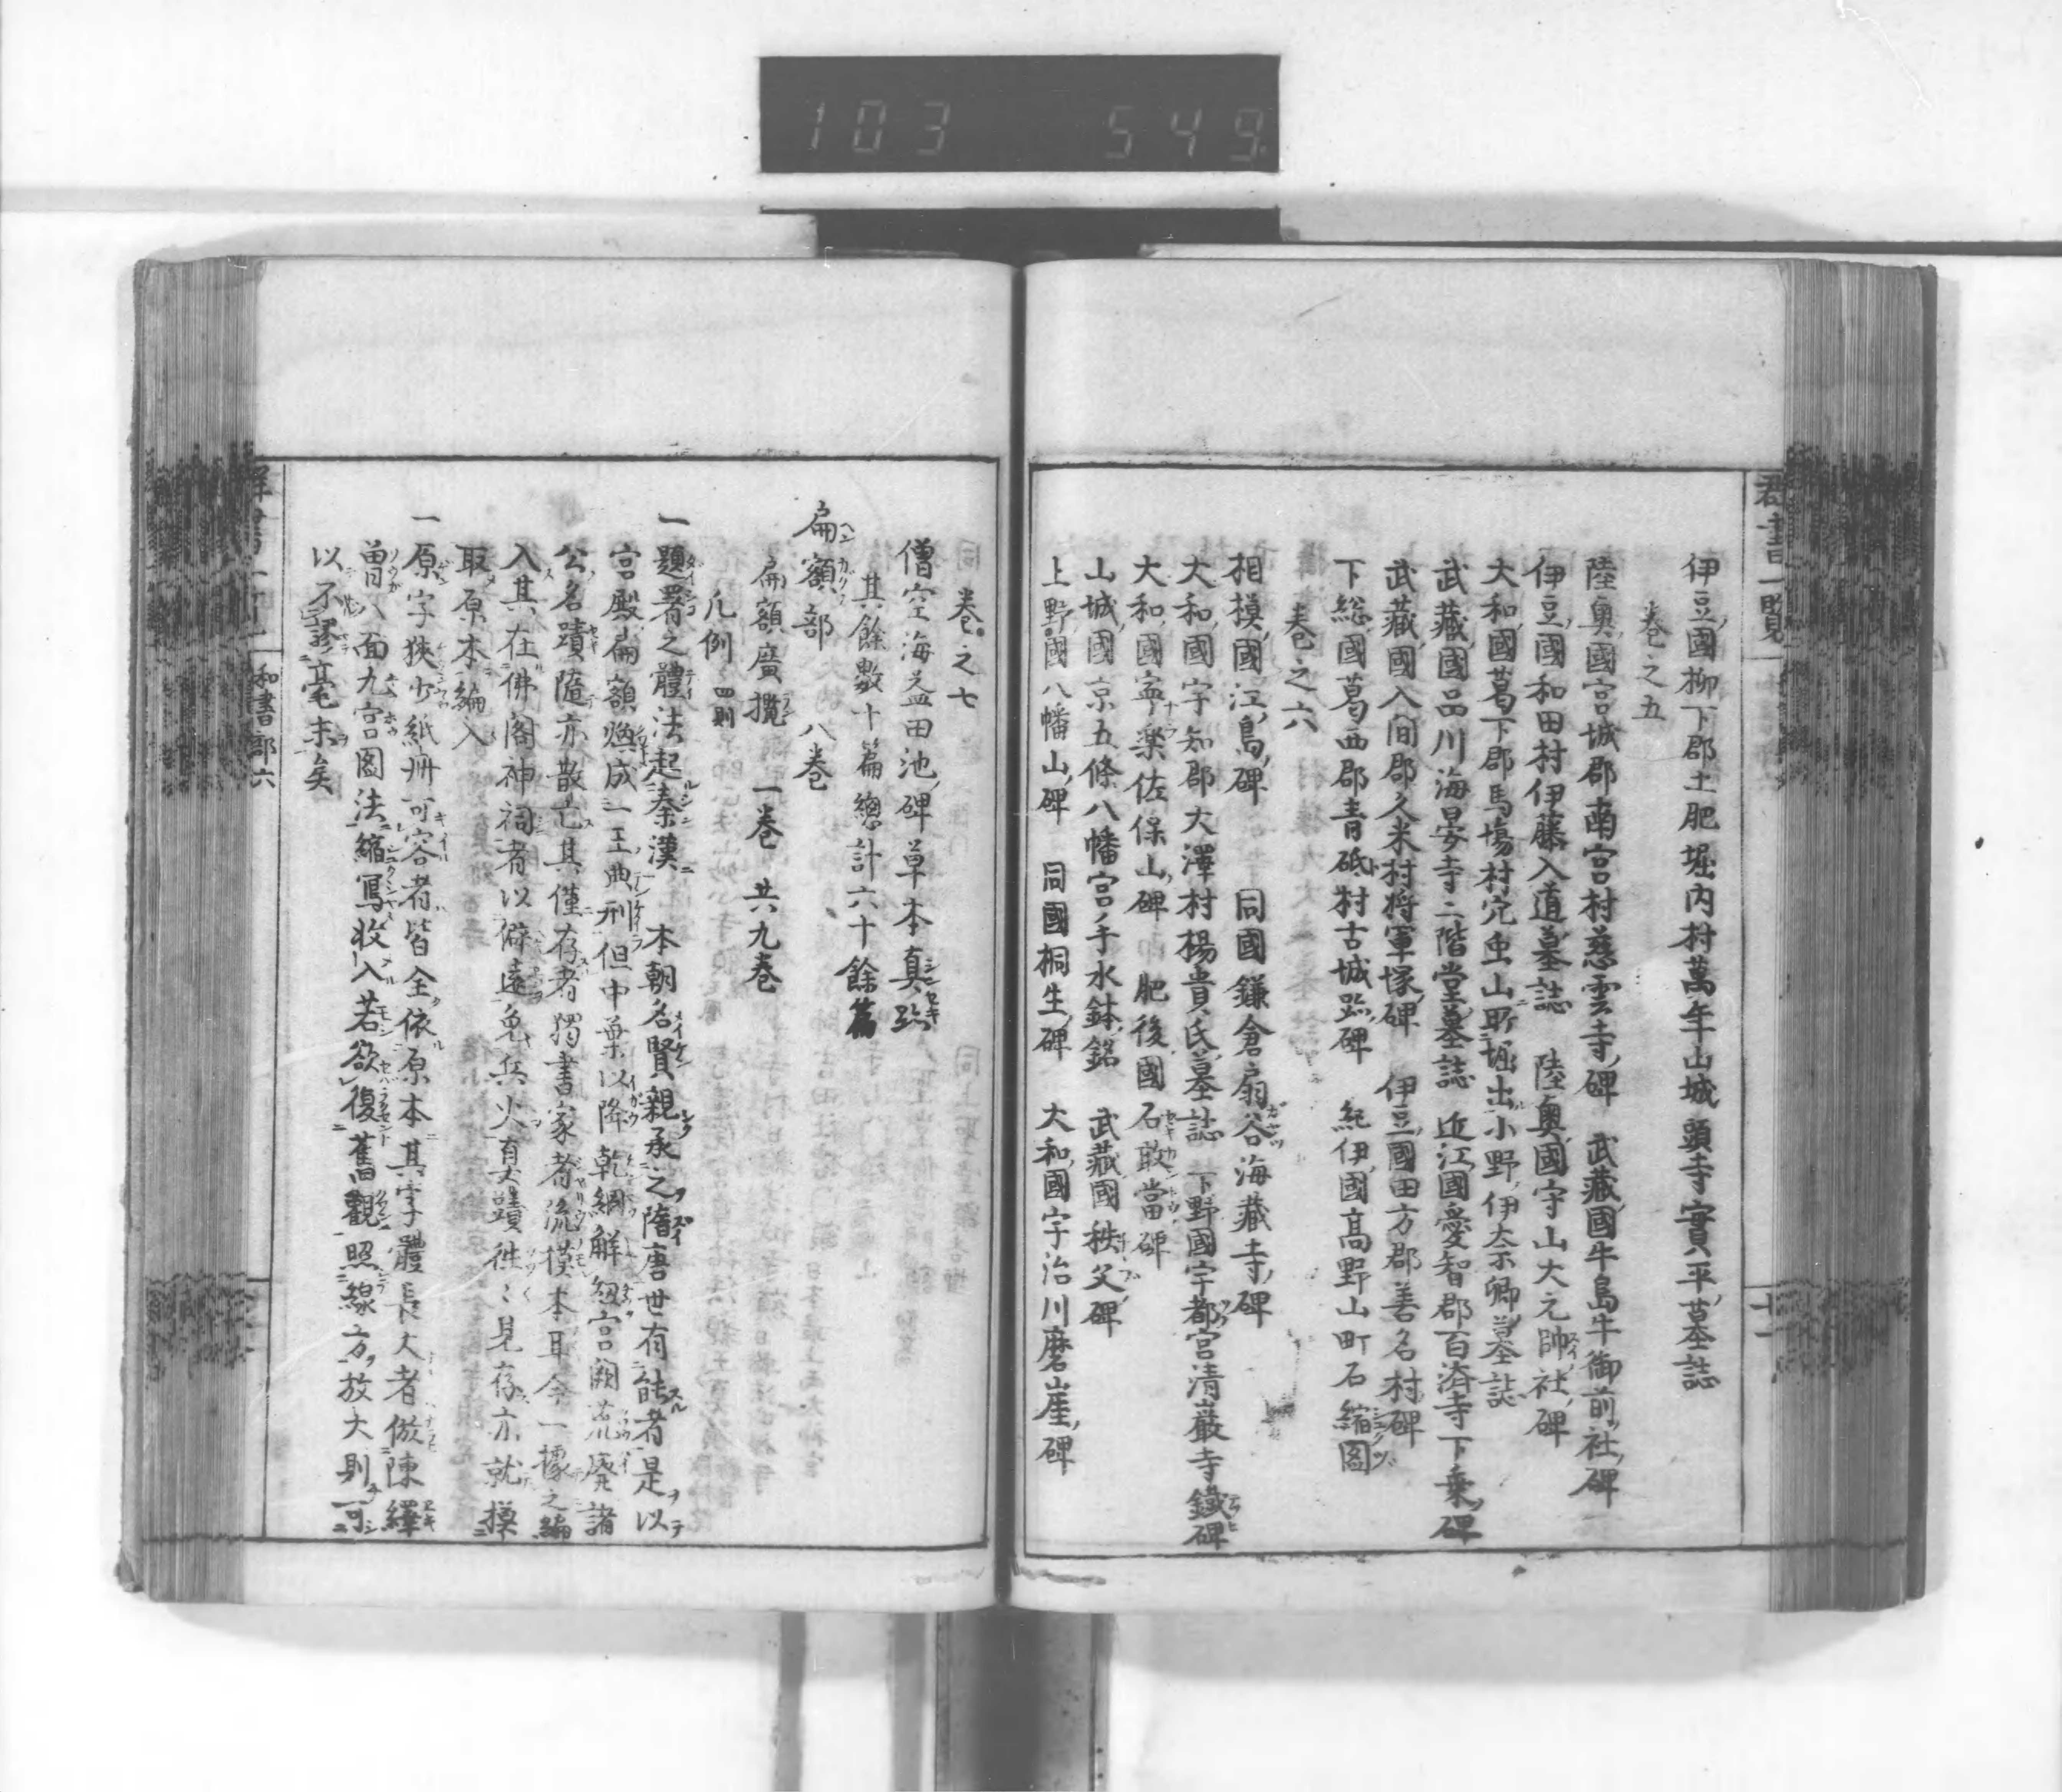 103 549
群書一覧
伊豆國柳下郡土肥堀内村萬年山城頭寺實平墓誌
巻之五
陸奥國宮城郡南宮村慈雲寺碑 武藏國牛島牛御前社碑
伊豆國和田村伊藤入道墓誌 陸奥國宇山大元帥社碑
大和國葛下郡馬塲村穴虫山所堀出小野伊奈卿墓誌
武藏國品川海晏寺二階堂墓誌 近江國愛智郡百済寺下乗碑
武藏國入間郡久米村将軍塚碑 伊豆國田方郡善名村碑
下総國葛西郡青砥村古城趾碑 紀伊國髙野山町石縮圖
巻之六
相模國江島碑 同國鎌倉扇谷海藏寺碑
大和國宇知郡大澤村楊貴氏墓誌 下野國宇都宮清巖寺鐵碑
大和國寧楽佐保山碑 肥後國石敢當碑
山城國京五條八幡宮手水鉢銘 武藏國秩父碑
上野國八幡山碑 同國桐生碑 大和國宇治川磨崖碑
巻之七
僧空海益田池碑草本真跡
其餘數十篇總計六十餘篇
扁額部 八巻
扁額廣攬 一巻 共九巻
凡例 四則
一題署之體法起秦漢 本朝名賢親承之隋唐世有能者是以
宮殿扁額煥成一王典刑但中葉以降乾綱解紐宮闕荒廃諸
公名蹟隨亦散亡其僅存者獨書家者流模本耳今一據之編
入其在佛閣神祠者以僻遠免兵火有真蹟徃〻見存亦就模
取原本編入
一原字狹少紙册可容者皆全依原本其字體長大者倣陳繹
曽八面九宮圖法縮寫收入若欲復舊觀照線方放大則可
以不謬毫末矣
和書部六